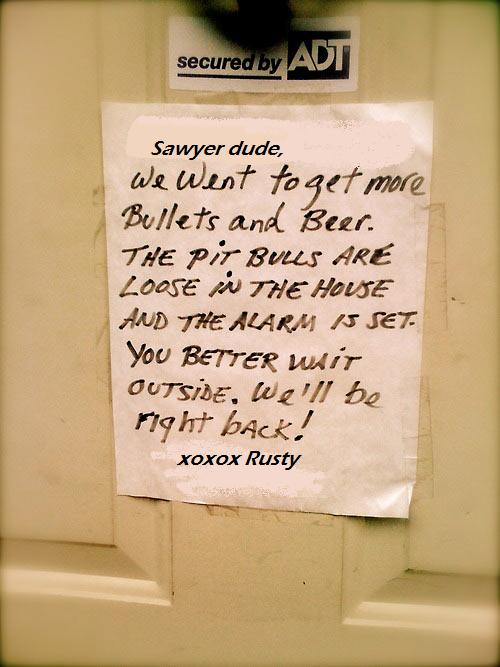 secured by ADT
Sawyer dude,
We Went to get more
Bullets and Beer.
THE PIT BULLS ARE
LOOSE IN THE HOUSE
AND THE ALARM IS SET.
YOU BETTER WAIT
OUTSIDE. We'll be
right back!
xoxox Rusty